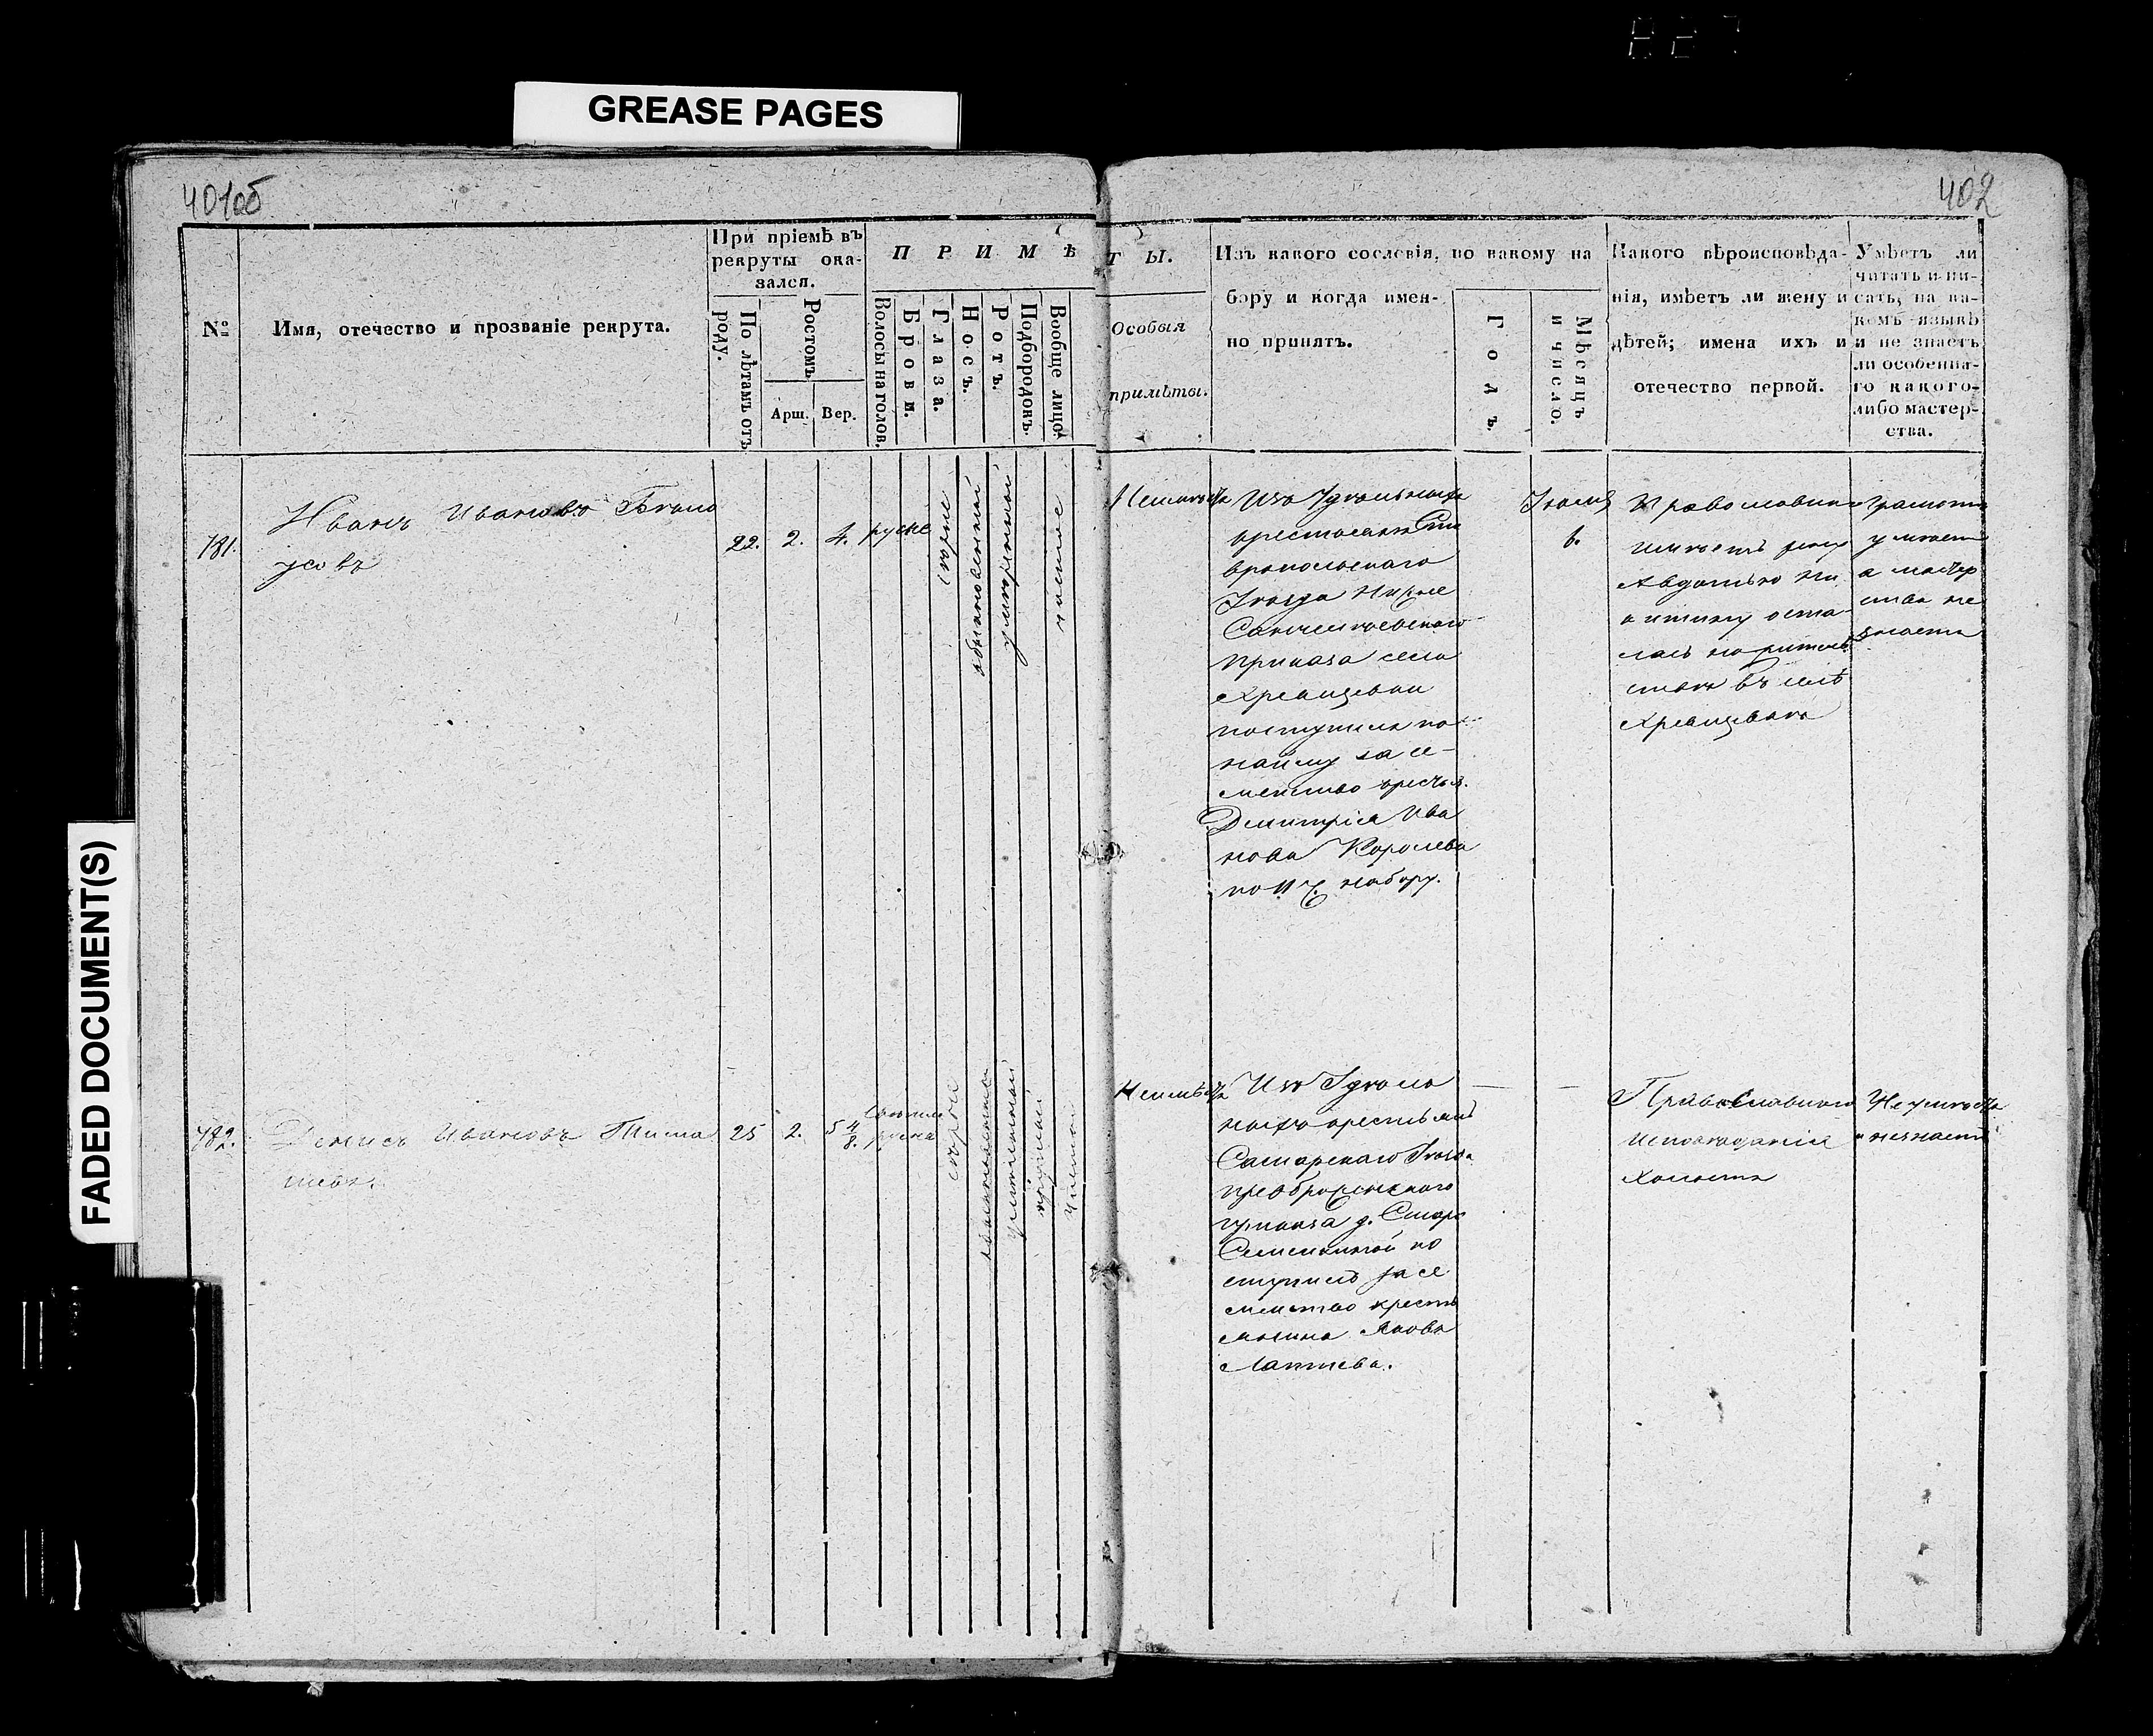 GREASE PAGES
FADED DOCUMENT(S)
401об
402
№
Имя, отечество и прозваніе рекрута.
При пріемѣ въ
рекруты ока-
зался.
По лѣтамъ отъ
роду.
Ростомъ
Арш.
Вер.
П Р И М Ѣ
Т Ы.
Волосы на голов.
Брови.
Глаза.
Носъ.
Ротъ.
Подбородокъ.
Вообще лицо.
Особыя
примѣты.
Изъ какого сословія, по какому на
бору и когда имен-
но принятъ.
Годъ.
Мѣсяцъ
и число.
Какого вѣроисповѣда-
нія, имѣетъ ли жену и
дѣтей; имена ихъ и
отечество первой.
Умѣетъ ли
читать и пи-
сать, на ка-
комъ языкѣ
и не знаетъ
ли особенна-
го какого-
либо мастер-
ства.
781.
Иванъ Ивановъ Бѣло
усовъ
22.
2.
4.
русые
сѣрые
обыкновенный
умѣренный
чистое
Неимѣетъ
Изъ Удѣльныхъ
крестьянъ Ста
вропольскаго
Уѣзда Нижне
Санчелѣевскаго
приказа села
Хрящевки
поступилъ по
найму за се-
мейство крестья.
Димитрія Ива
нова Королева
по 11 Ч. набору.
6.
Православнаго
имѣетъ жену
Авдотью Ни
китину оста-
лась на жительс
твѣ въ селѣ
Хрящевкѣ
Грамотѣ
умѣетъ
а мастер
ства не
знаетъ
782.
Денисъ Ивановъ Тима
шевъ.
25
2.
5 4/8.
Свѣтло
русые
сѣрые
умѣренный
круглый
чистое
Неимѣетъ
Изъ Удѣль
ныхъ крестьянъ
Самарскаго Уѣзда
преображенскаго
приказа д. Старо
Семейкиной по
ступилъ за се
мейство кресть
янина Якова
Лаптева.
Православнаго
исповѣданія
холостъ
Неумѣетъ
и незнаетъ